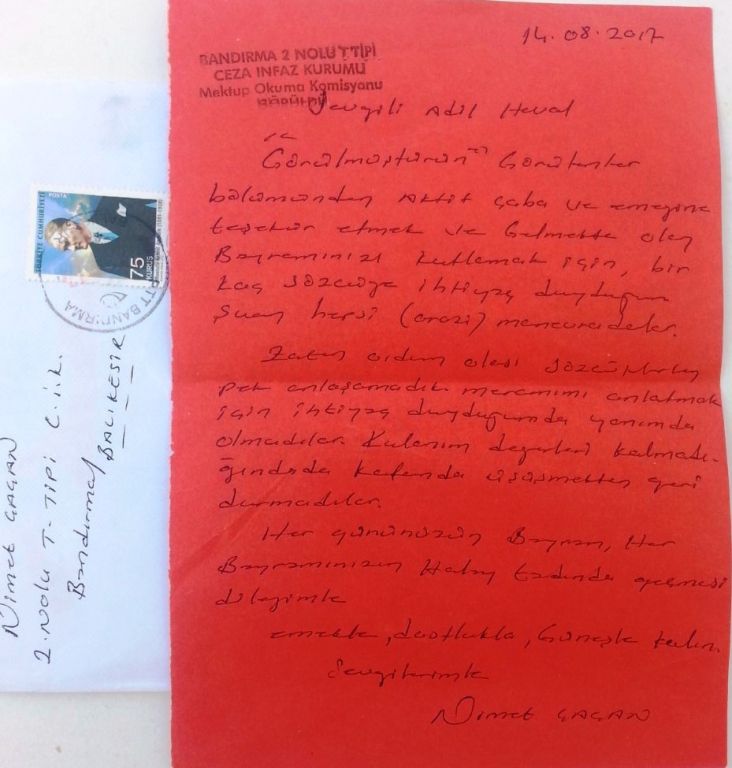 14.08.2017
BANDIRMA 2 NOLU T TİPİ
CEZA İNFAZ KURUMU
Mektup Okuma Komisyonu
GÖRÜLDÜ
Sevgili Adil Heval
"Görülmüştürün" Görülenler
bölümünden Aktif çaba ve emeğine
teşekür etmek ve Gelmekte olan
Bayramınızı kutlamak için, bir
kaç sözcüğe ihtiyaç duyduğum
şuan hepsi (arazi) manevradalar.
Zaten oldum olası sözcüklerle
pek anlaşamadık. meramımı anlatmak
için ihtiyaç duyduğumda yanımda
olmadılar. Kulanım değerleri kalmadı-
ğındada kafamda üşüşmekten geri
durmadılar.
Her gününüzün Bayram, Her
Bayramınızın Halay tadında geçmesi
dileğimle
emekle, dostlukla, Güneşle kalın.
Sevgilerimle
Nimet GAGAN
TÜRKİYE CUMHURİYETİ
POSTA
75
KURUŞ
BANDIRMA
Nimet GAGAN
2. Nolu T-TİPİ C.İ.K.
Bandırma/
BALIKESİR